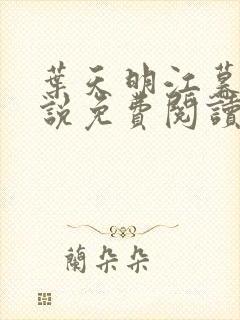 葉天明江慕
說免費閱讀
蘭朵朵